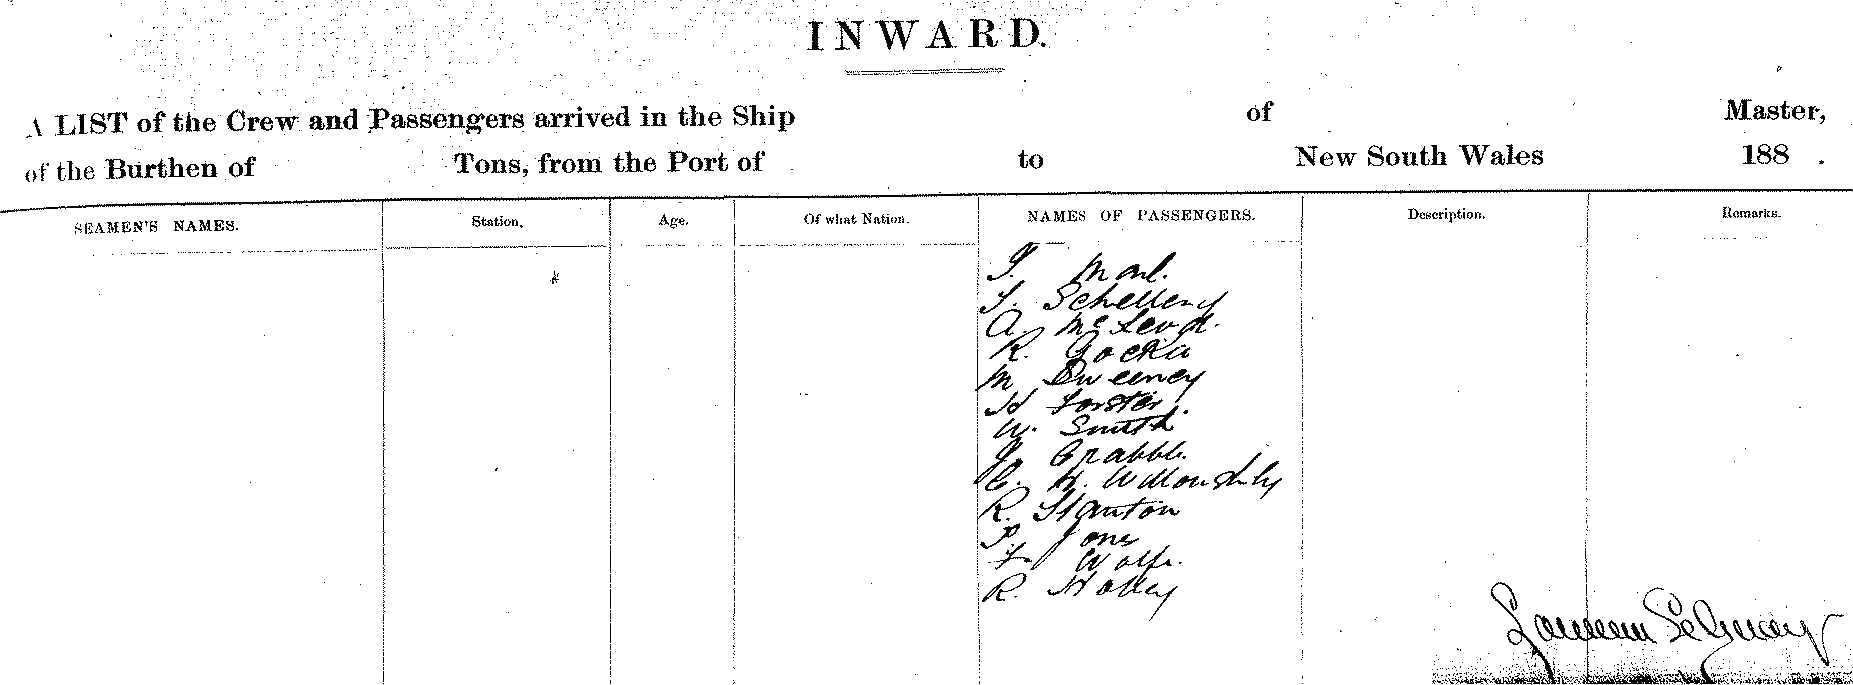 INWARD.
A LIST of the Crew and Passengers arrived in the Ship of Master,
of the Burthen of Tons, from the Port of to New South Wales 188 .
SEAMEN'S NAMES. Station. Age. Of what Nation. NAMES OF PASSENGERS. Description. Remarks.
A. McLeod.
R.
M Sweeney
H Forster.
W. Smith
Crabbe.
C. H. Willoughby
R. Stanton
P. Jones
Wolfe.
R.